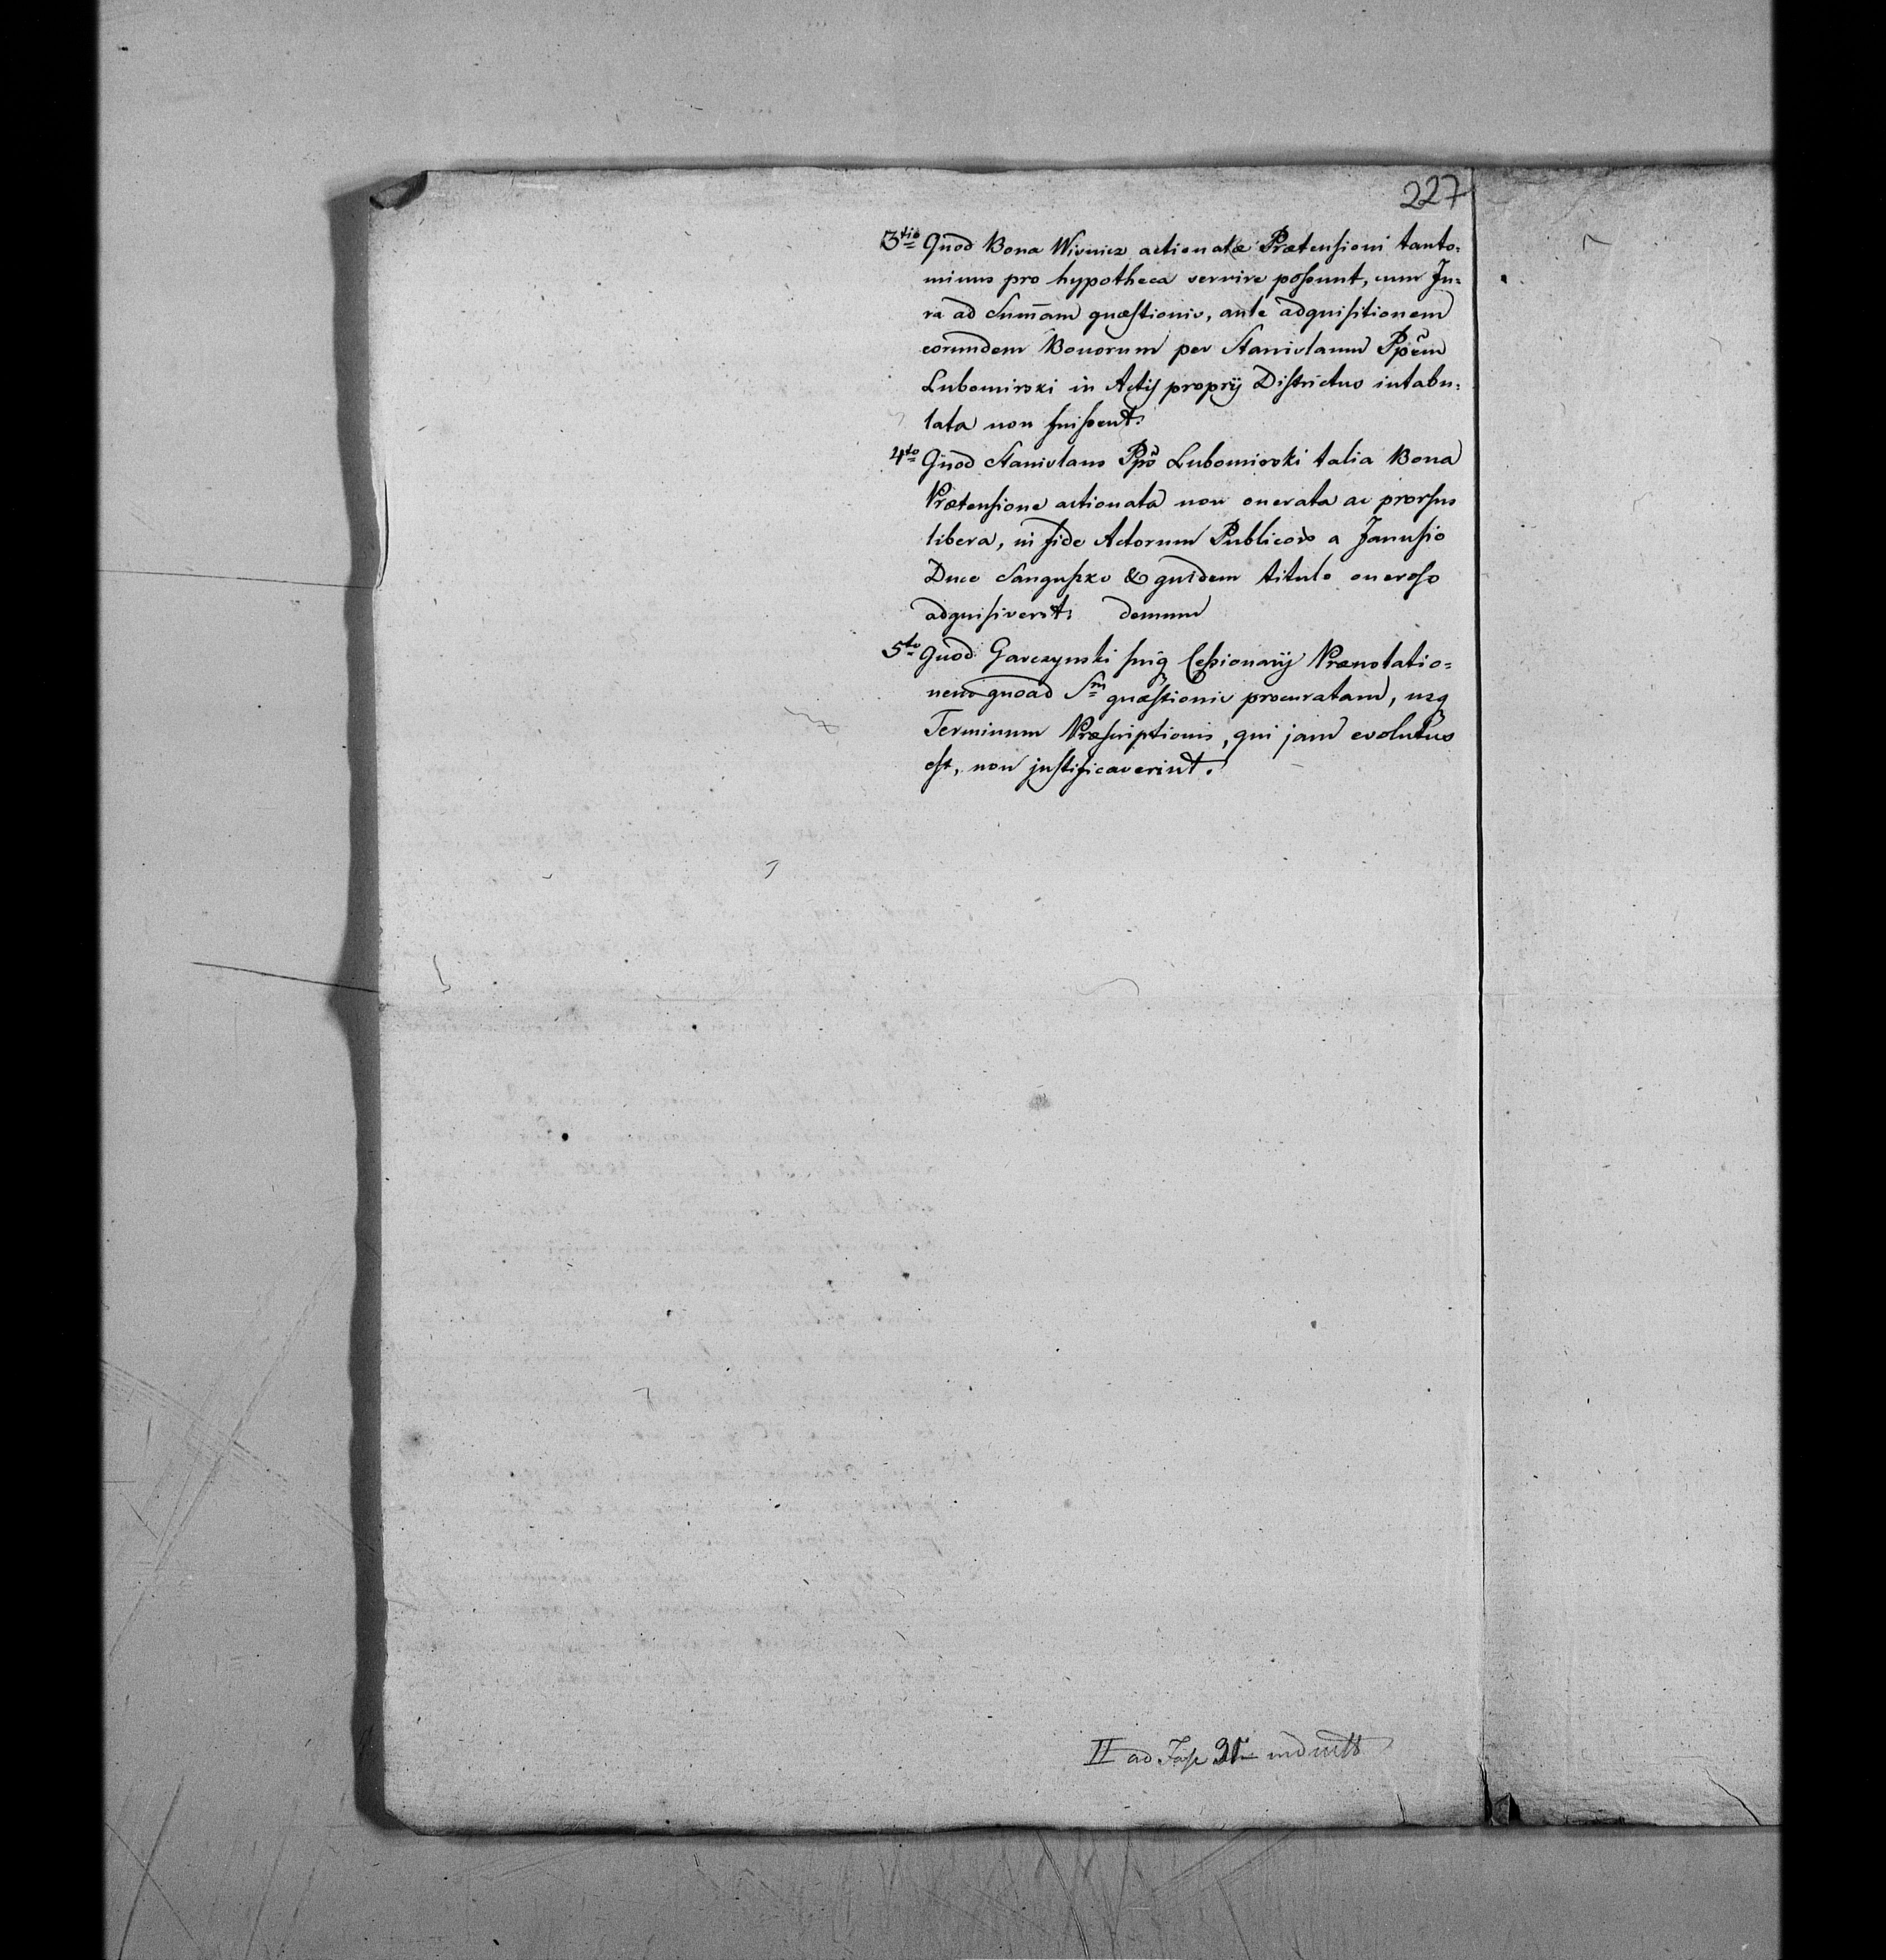 227
3tio Quod Bona Wisnicz actionatæ Prætensioni tanto=
minus pro hypotheca servire possunt, cum Ju=
ra ad Sum̄am quæstionis, ante adquisitionem
eorundem Bonorum per Stanislaum Pp̃em
Lubomirski in Actis proprij Districtus intabu=
lata non fuissent.
4to Quod Stanislaus Pp̃s Lubomirski talia Bona
Prætensione actionata non onerata ac prorsus
libera, in fide Actorum Publicor a Janusio
Duce Sangusko & quidem titulo oneroso
adquisiverit, demum
5to Quod Garczynski suiq Cessionarij Prænotatio=
nem quoad Sm quæstionis procuratam, usq
Terminum Præscriptionis, qui jam evolutus
est, non justificaverint.
II ad Fasc 31